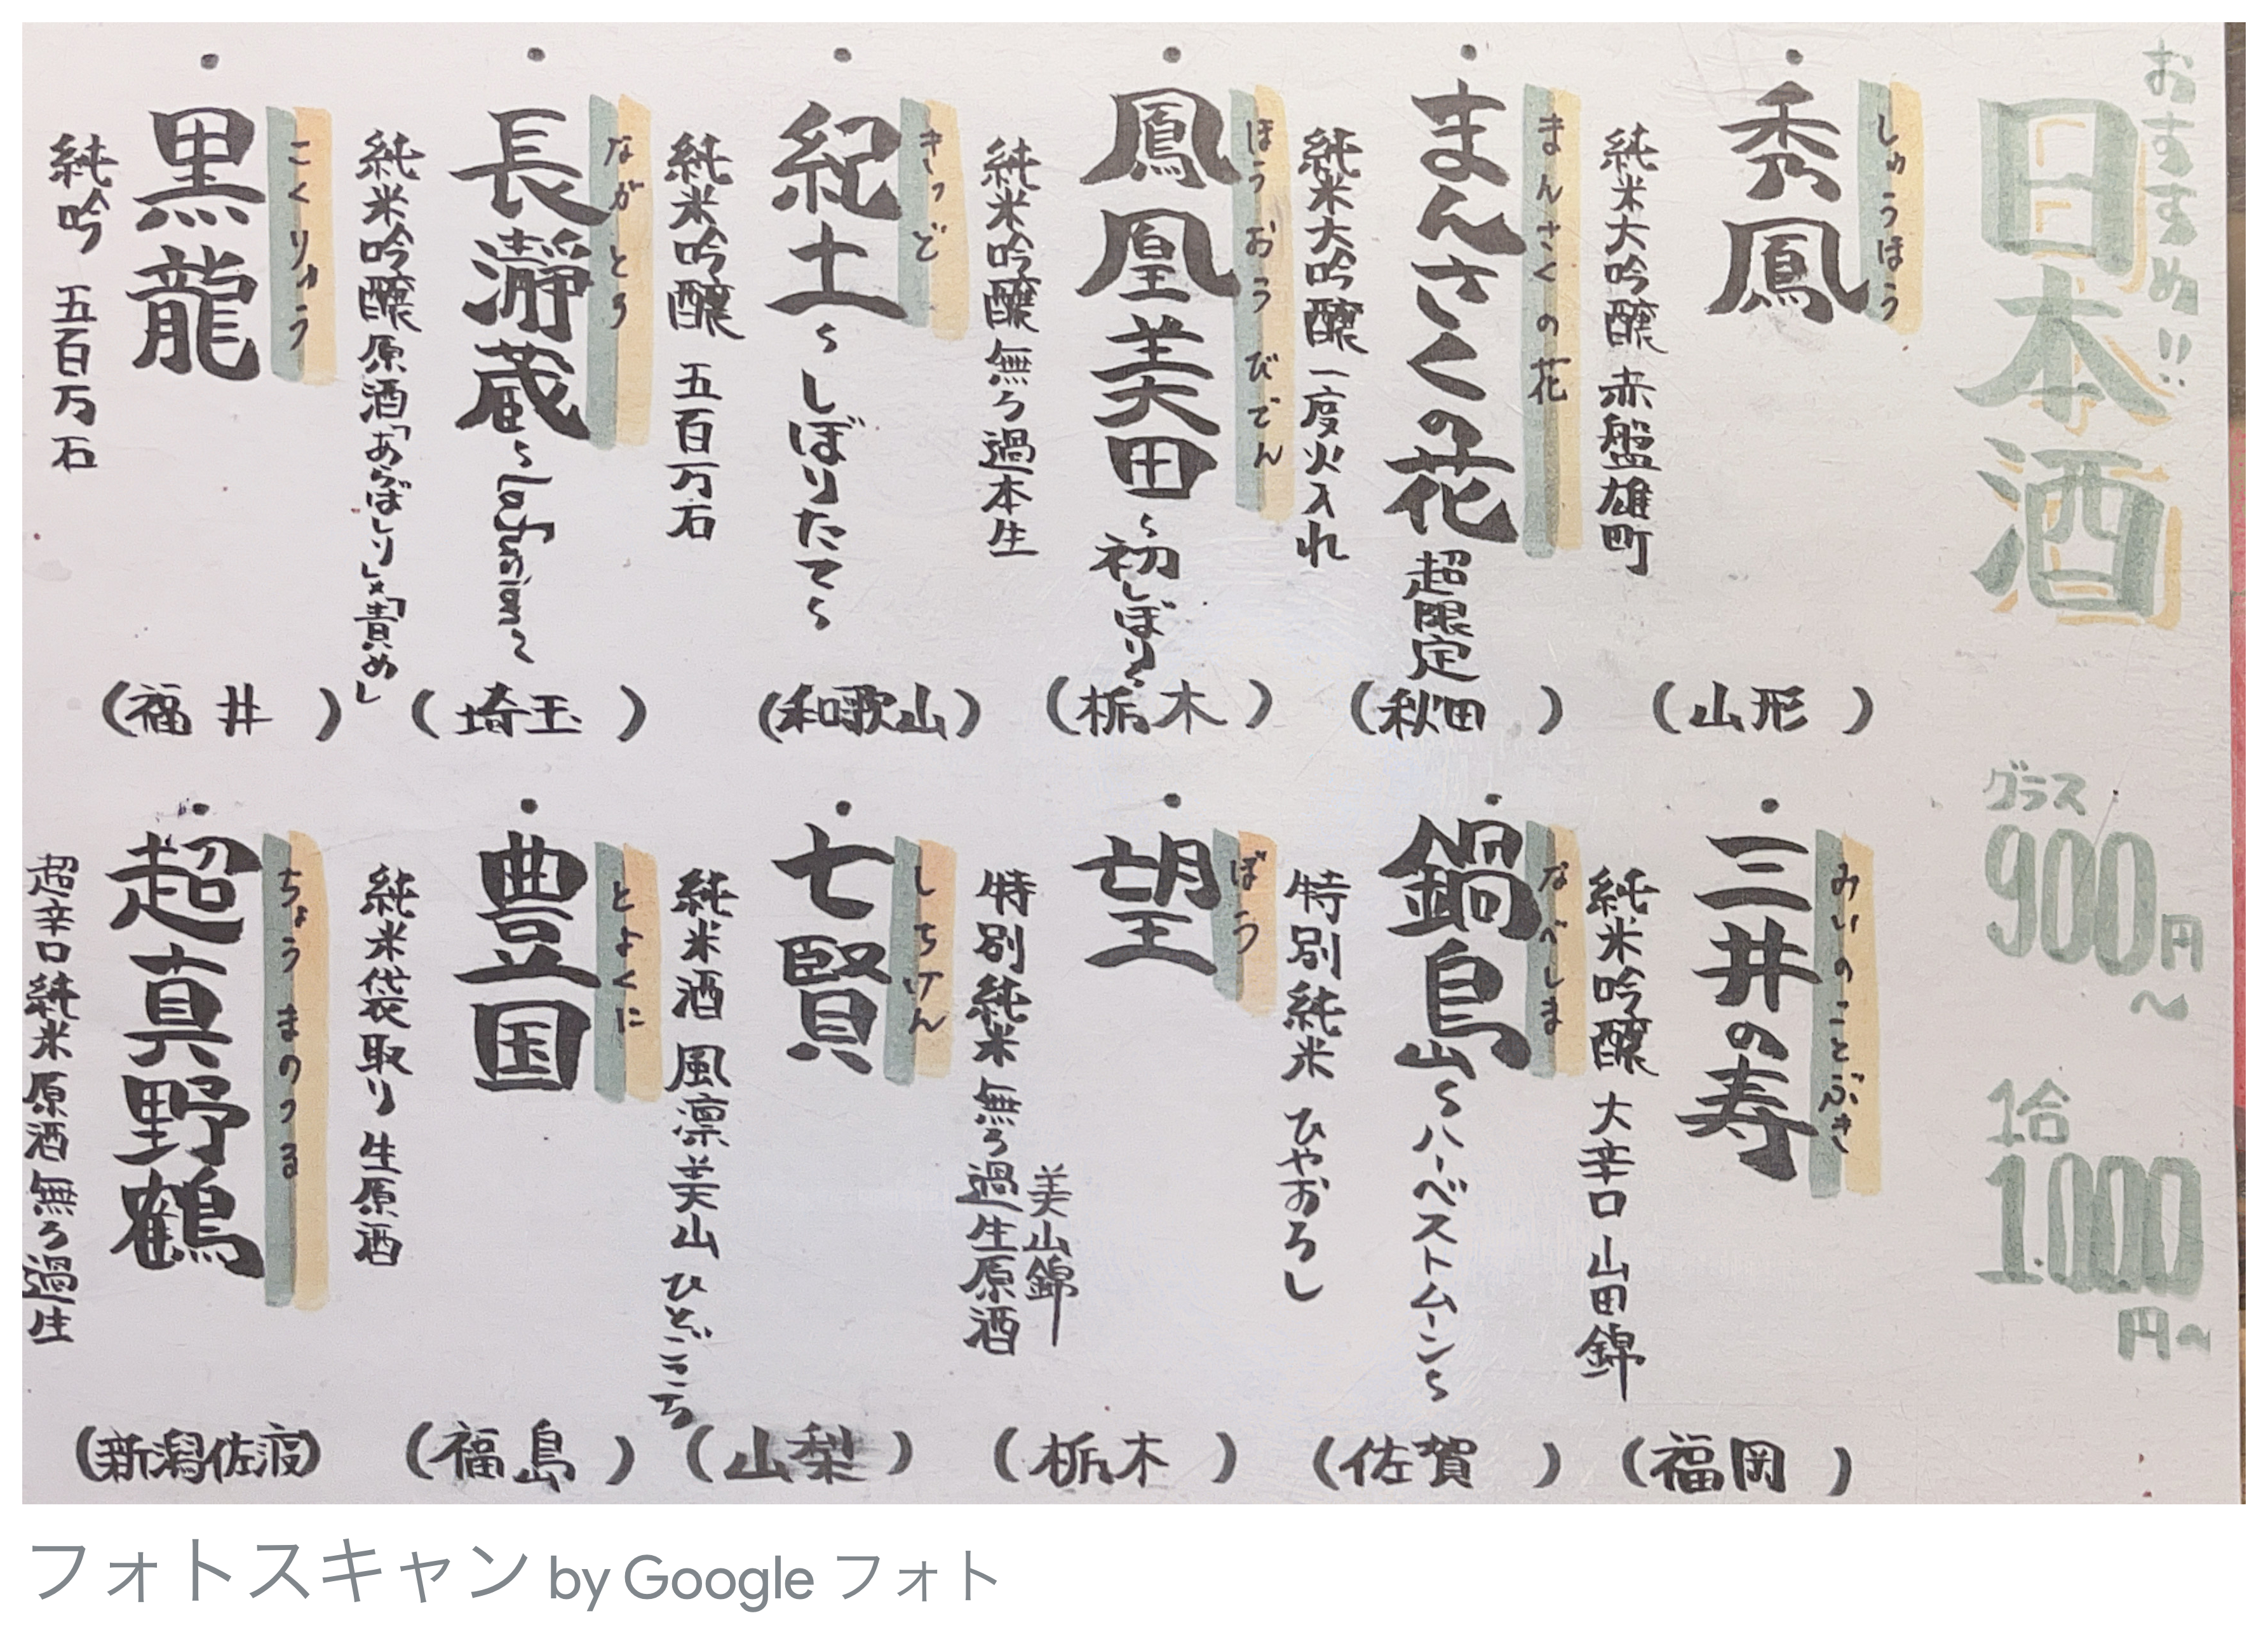 おすすめ!!
日本酒
グラス
900円
～
1合
1.000
円～
・
しゅうほう
秀鳳
純米大吟醸 赤盤雄町
(山形)
・
まんさくの花
まんさくの花 超限定
純米大吟醸 一度火入れ
(秋田)
・
ほうおうびでん
鳳凰美田～初しぼり～
純米吟醸 無ろ過本生
(栃木)
・
きっど
紀土～しぼりたて～
純米吟醸 五百万石
(和歌山)
・
ながとろ
長瀞蔵
純米吟醸原酒「あらばしり」×「責め」
(埼玉)
・
こくりゅう
黒龍
純吟 五百万石
(福井)
・
みいのことぶき
三井の寿
純米吟醸 大辛口 山田錦
(福岡)
・
なべしま
鍋島～ハーベストムーン～
特別純米 ひやおろし
(佐賀)
・
ぼう
望
美山錦
特別純米 無ろ過生原酒
(栃木)
・
しちけん
七賢
純米酒 風凛美山 ひとごこち
(山梨)
・
とよくに
豊国
純米袋取り 生原酒
(福島)
・
ちょうまのつる
超真野鶴
超辛口純米原酒 無ろ過生
(新潟佐渡)
フォトスキャン by Google フォト